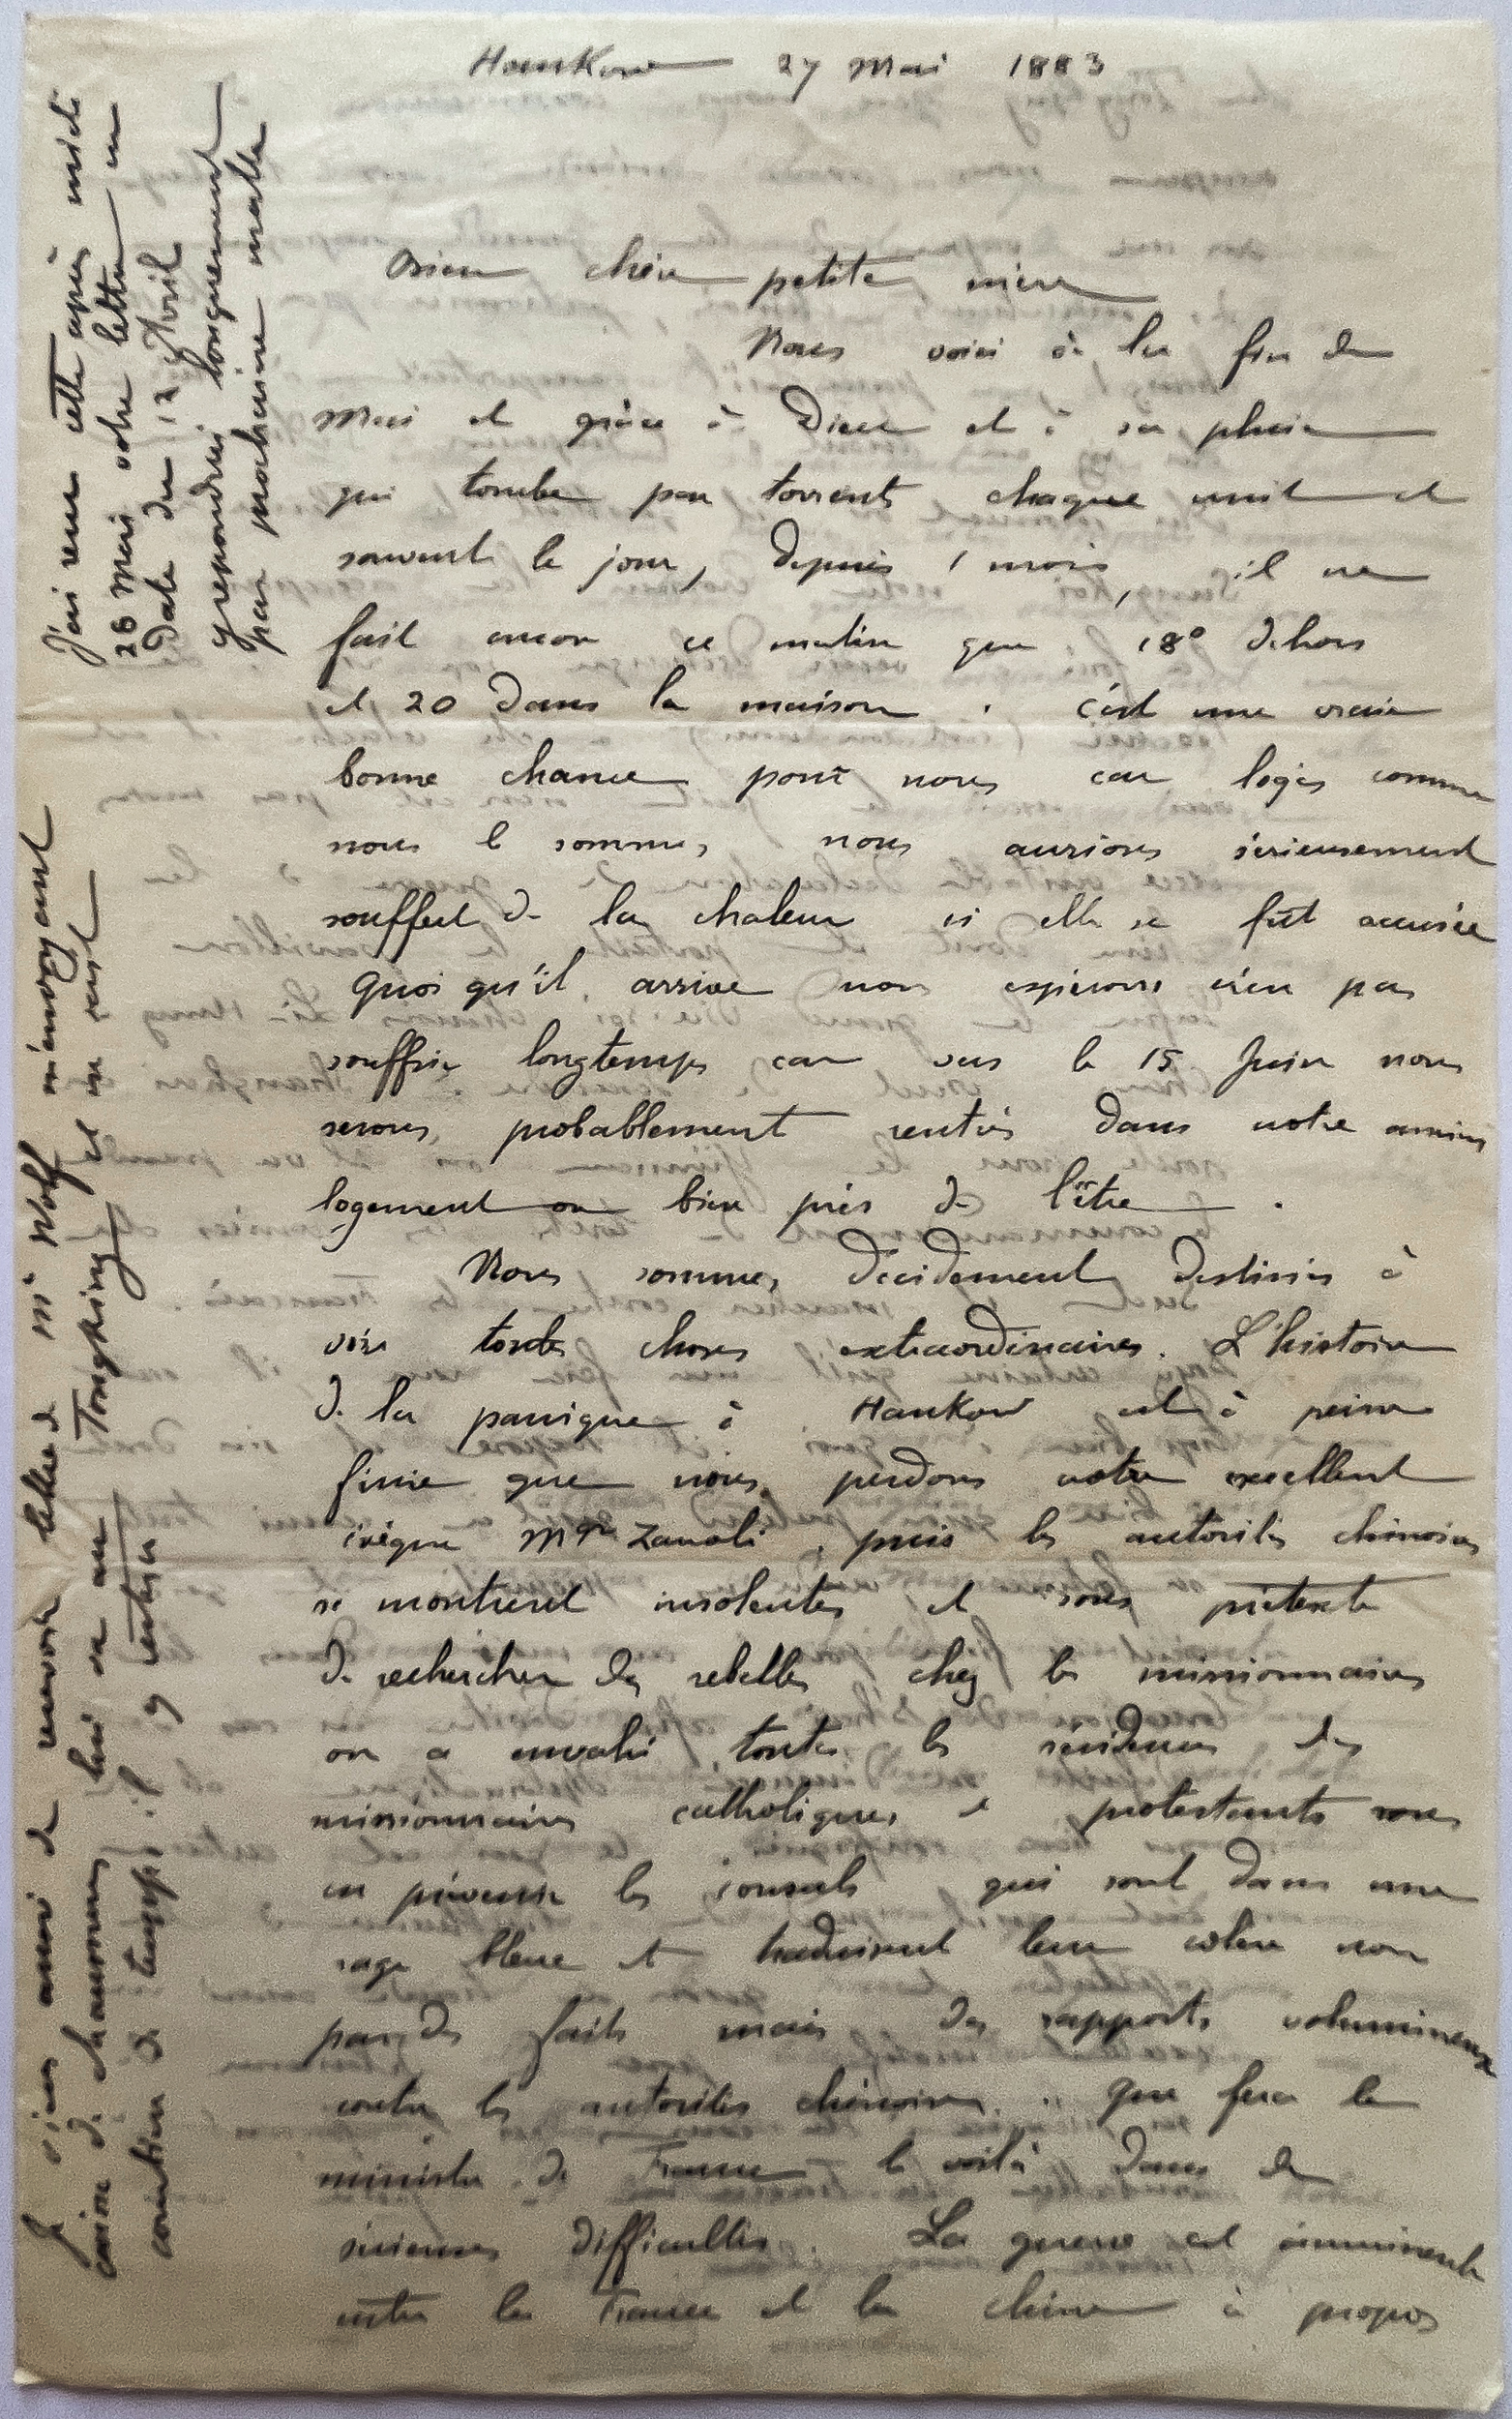 Hankow 27 Mai 1883
Bien chère petite mère
Nous voici à la fin de
Mai et grâce à Dieu et à sa pluie
qui tombe par torrents chaque nuit et
souvent le jour, depuis 1 mois, il ne
fait encore ce matin que 18° dehors
et 20 dans la maison. c'est une vraie
bonne chance pour nous car logés comme
nous le sommes, nous aurions sérieusement
souffert de la chaleur si elle se fût accusée
Quoi qu'il arrive nous espérons n'en pas
souffrir longtemps car vers le 15 Juin nous
serons probablement rentrés dans notre ancien
logement ou bien près de l'être.
Nous sommes décidement destinés à
voir toutes choses extraordinaires. L'histoire
de la panique à Hankow est à peine
finie que nous perdons notre excellent
évêque Mgr Zanoli, puis les autorités chinoises
se montrent insolentes et sous prétexte
de rechercher des rebelles chez les missionnaires
on a envahi toutes les résidences des
missionnaires catholiques et protestants sans
en prévenir les consuls qui sont dans une
rage bleue et traduisent leur colère non
par des faits mais des rapports volumineux
contre les autorités chinoises. Que fera le
ministre de France le voilà dans de
sérieuses difficultés. La guerre est imminente
entre la France et la Chine à propos
J'ai reçu cette après midi
26 Mai votre lettre en
date du 12 Avril
y repondrai longuement
par prochaine malle
Je viens aussi de recevoir lettre de Mr Wolf m'envoyant
caisse de chaussures lui va au Tongking et me rend
caution de temps il y restera